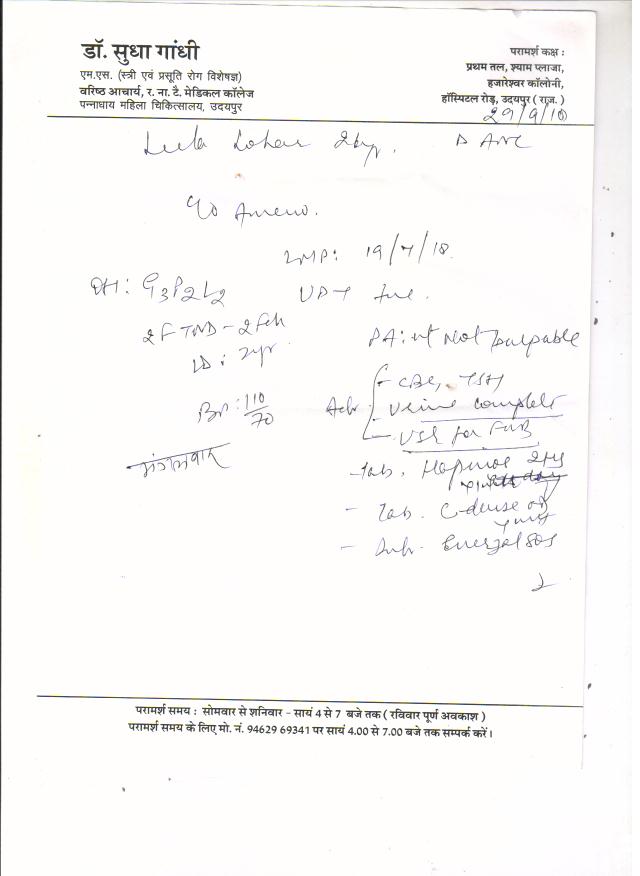 डॉ. सुधा गांधी
एम.एस. (स्त्री एवं प्रसूति रोग विशेषज्ञ)
वरिष्ठ आचार्य, र. ना. टै. मेडिकल कॉलेज
पन्नाधाय महिला चिकित्सालय, उदयपुर
परामर्श कक्ष :
प्रथम तल, श्याम प्लाजा,
हजारेश्वर कॉलोनी,
हॉस्पिटल रोड़, उदयपुर ( राज. )
29/9/18
Leela Lohar ANC
LMP: 19/7/18
OH: G3P2L2
UPT
2 FTND - 2 Feh
LD: 2yr
PA: ut Not palpable
BP: 110/70
Adv CBC, TSH
Urine complete
USG for FWB
मंगलवार
- Tab.
- Tab.
-
परामर्श समय : सोमवार से शनिवार - सायं 4 से 7 बजे तक ( रविवार पूर्ण अवकाश )
परामर्श समय के लिए मो. नं. 94629 69341 पर सायं 4.00 से 7.00 बजे तक सम्पर्क करें।